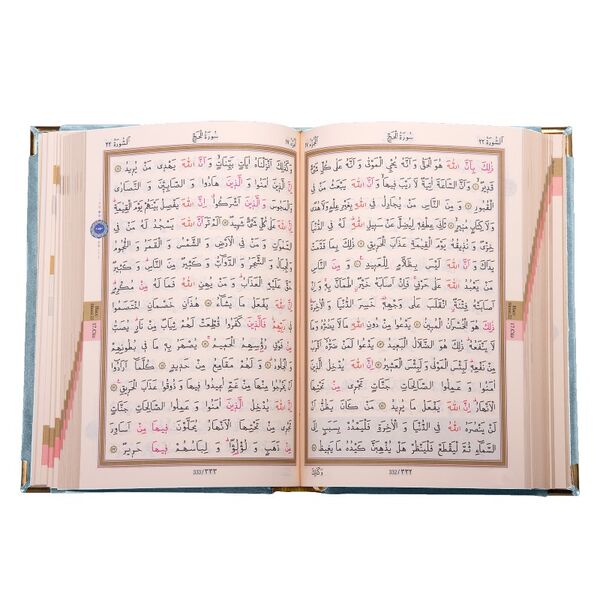 اَلسُّورَة ٢٢
سُورَةُ الْحَجِّ
اَلْجُزْءُ ١٧
ذٰلِكَ بِاَنَّ اللّٰهَ هُوَ الْحَقُّ وَ اَنَّهُ يُحْيِ الْمَوْتٰى وَ اَنَّهُ عَلٰى كُلِّ شَيْءٍ
قَدِيرٌ وَ اَنَّ السَّاعَةَ اٰتِيَةٌ لَا رَيْبَ فِيهَا وَ اَنَّ اللّٰهَ يَبْعَثُ مَنْ فِي
الْقُبُورِ وَ مِنَ النَّاسِ مَنْ يُجَادِلُ فِي اللّٰهِ بِغَيْرِ عِلْمٍ وَ لَا هُدًى
وَ لَا كِتَابٍ مُنِيرٍ ثَانِيَ عِطْفِهِ لِيُضِلَّ عَنْ سَبِيلِ اللّٰهِ لَهُ فِي الدُّنْيَا
خِزْيٌ وَ نُذِيقُهُ يَوْمَ الْقِيٰمَةِ عَذَابَ الْحَرِيقِ ذٰلِكَ بِمَا قَدَّمَتْ
يَدَاكَ وَ اَنَّ اللّٰهَ لَيْسَ بِظَلَّامٍ لِلْعَبِيدِ وَ مِنَ النَّاسِ
مَنْ يَعْبُدُ اللّٰهَ عَلٰى حَرْفٍ فَاِنْ اَصَابَهُ خَيْرٌ اطْمَاَنَّ بِهِ وَ اِنْ
اَصَابَتْهُ فِتْنَةٌ انْقَلَبَ عَلٰى وَجْهِهِ خَسِرَ الدُّنْيَا وَ الْاٰخِرَةَ
ذٰلِكَ هُوَ الْخُسْرَانُ الْمُبِينُ يَدْعُوا مِنْ دُونِ اللّٰهِ مَا لَا يَضُرُّهُ وَ مَا
لَا يَنْفَعُهُ ذٰلِكَ هُوَ الضَّلَالُ الْبَعِيدُ يَدْعُوا لَمَنْ ضَرُّهُ اَقْرَبُ
مِنْ نَفْعِهِ لَبِئْسَ الْمَوْلٰى وَ لَبِئْسَ الْعَشِيرُ اِنَّ اللّٰهَ يُدْخِلُ
الَّذِينَ اٰمَنُوا وَ عَمِلُوا الصَّالِحَاتِ جَنَّاتٍ تَجْرِي مِنْ تَحْتِهَا
الْاَنْهَارُ اِنَّ اللّٰهَ يَفْعَلُ مَا يُرِيدُ مَنْ كَانَ يَظُنُّ اَنْ
لَنْ يَنْصُرَهُ اللّٰهُ فِي الدُّنْيَا وَ الْاٰخِرَةِ فَلْيَمْدُدْ بِسَبَبٍ اِلَى
السَّمَاءِ ثُمَّ لْيَقْطَعْ فَلْيَنْظُرْ هَلْ يُذْهِبَنَّ كَيْدُهُ مَا يَغِيظُ
وَ كَذٰلِكَ
332/٣٣٢
اَلسُّورَة ٢٢
سُورَةُ الْحَجِّ
اَلْجُزْءُ ١٧
وَ كَذٰلِكَ اَنْزَلْنَاهُ اٰيَاتٍ بَيِّنَاتٍ وَ اَنَّ اللّٰهَ يَهْدِي مَنْ يُرِيدُ
اِنَّ الَّذِينَ اٰمَنُوا وَ الَّذِينَ هَادُوا وَ الصَّابِئِينَ وَ النَّصَارٰى
وَ الْمَجُوسَ وَ الَّذِينَ اَشْرَكُوا اِنَّ اللّٰهَ يَفْصِلُ بَيْنَهُمْ يَوْمَ الْقِيٰمَةِ
اِنَّ اللّٰهَ عَلٰى كُلِّ شَيْءٍ شَهِيدٌ اَلَمْ تَرَ اَنَّ اللّٰهَ يَسْجُدُ لَهُ مَنْ فِي
السَّمٰوَاتِ وَ مَنْ فِي الْاَرْضِ وَ الشَّمْسُ وَ الْقَمَرُ وَ النُّجُومُ
وَ الْجِبَالُ وَ الشَّجَرُ وَ الدَّوَابُّ وَ كَثِيرٌ مِنَ النَّاسِ وَ كَثِيرٌ
حَقَّ عَلَيْهِ الْعَذَابُ وَ مَنْ يُهِنِ اللّٰهُ فَمَا لَهُ مِنْ مُكْرِمٍ
اِنَّ اللّٰهَ يَفْعَلُ مَا يَشَاءُ هٰذَانِ خَصْمَانِ اخْتَصَمُوا
فِي رَبِّهِمْ فَالَّذِينَ كَفَرُوا قُطِّعَتْ لَهُمْ ثِيَابٌ مِنْ نَارٍ يُصَبُّ
مِنْ فَوْقِ رُؤُسِهِمُ الْحَمِيمُ يُصْهَرُ بِهِ مَا فِي بُطُونِهِمْ
وَ الْجُلُودُ وَ لَهُمْ مَقَامِعُ مِنْ حَدِيدٍ كُلَّمَا اَرَادُوا
اَنْ يَخْرُجُوا مِنْهَا مِنْ غَمٍّ اُعِيدُوا فِيهَا وَ ذُوقُوا عَذَابَ الْحَرِيقِ
اِنَّ اللّٰهَ يُدْخِلُ الَّذِينَ اٰمَنُوا وَ عَمِلُوا الصَّالِحَاتِ جَنَّاتٍ
تَجْرِي مِنْ تَحْتِهَا الْاَنْهَارُ يُحَلَّوْنَ فِيهَا مِنْ اَسَاوِرَ
مِنْ ذَهَبٍ وَ لُؤْلُؤًا وَ لِبَاسُهُمْ فِيهَا حَرِيرٌ
333/٣٣٣